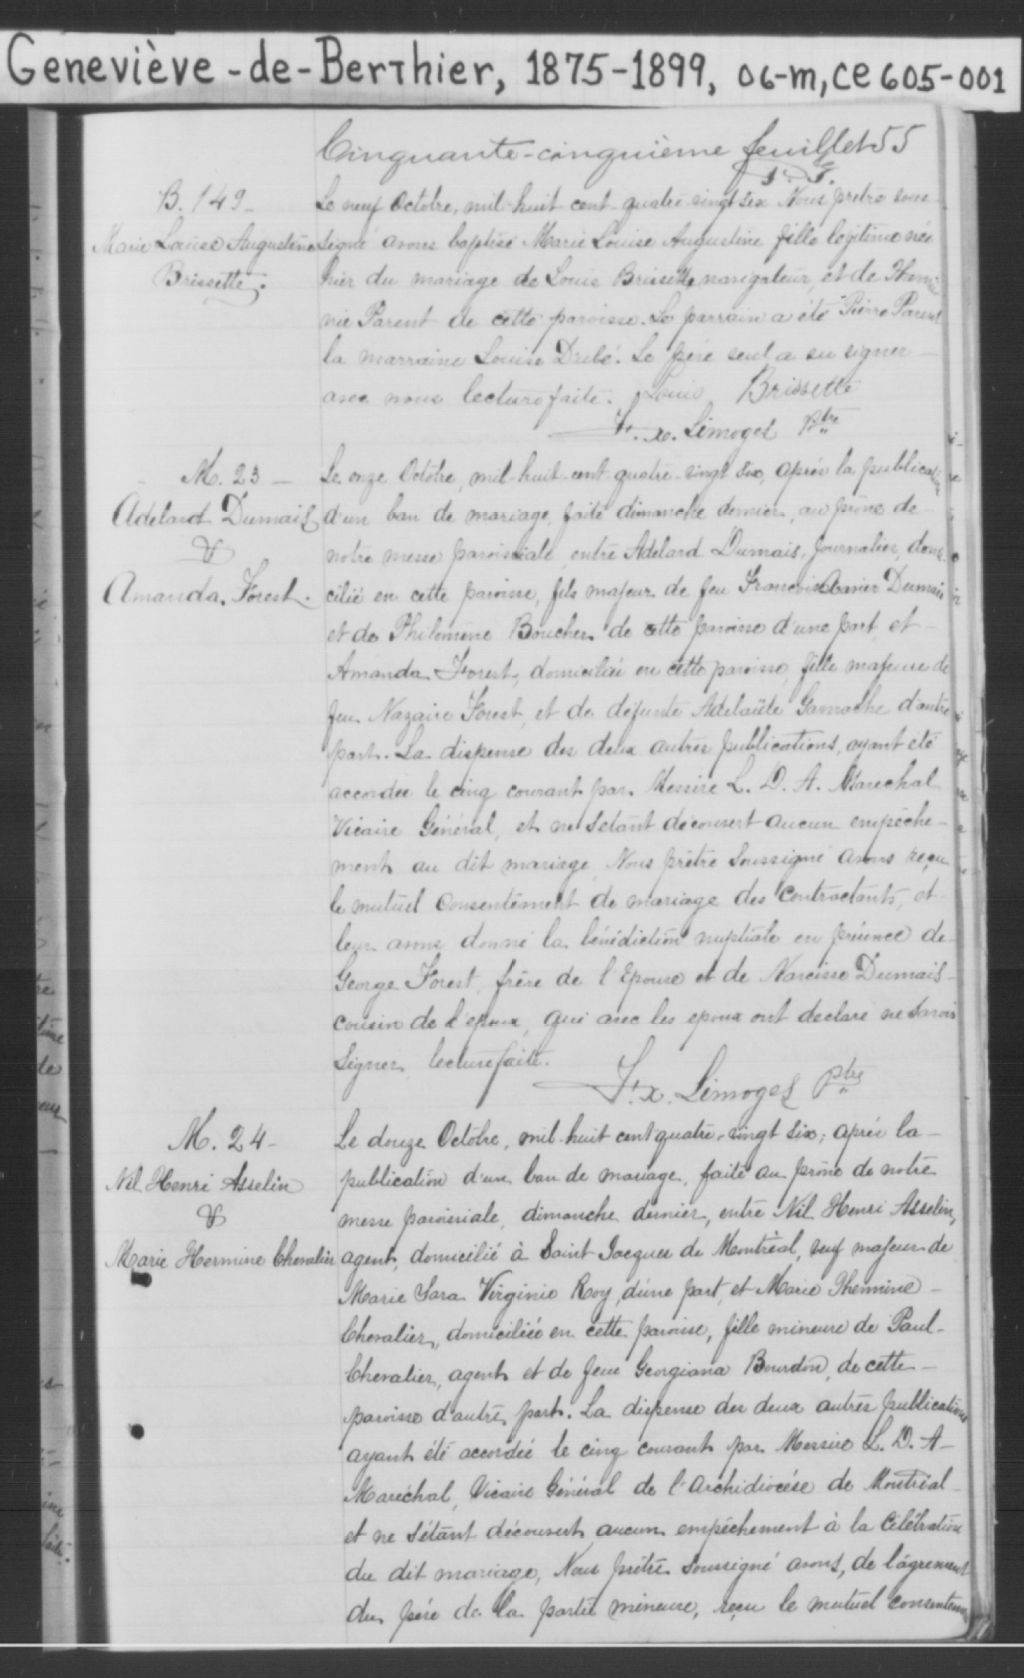 Geneviève-de-Berthier, 1875-1899, 06-m, CE605-001
Cinquante-cinquième feuillet 55
B. 149 -
Marie Louise Augustine
Brissette.
Le neuf Octobre, mil-huit cent-quatre-vingt six Nous prêtre sous-
signé avons baptisé Marie Louise Augustine fille légitime née
hier du mariage de Louis Brissette navigateur, et de
Parent de cette paroisse. Le parrain a été Pierre Parent
la marraine Louise Dribé. Le père seul a su signer
avec nous lecture faite. Louis Brissette
F. X. Limoges Ptre
M. 23 -
Adelard Dumais
&
Amanda Forest.
Le onze Octobre, mil-huit-cent-quatre-vingt six, après la publication
d'un ban de mariage, faite dimanche dernier, au prône de
notre messe paroissiale, entre Adelard Dumais, journalier, domi-
cilié en cette paroisse, fils majeur de feu François Xavier Dumais
et de Philomène Boucher de cette paroisse d'une part, et -
Amanda Forest, domiciliée en cette paroisse, fille majeure de
feu Nazaire Forest, et de défunte Adelaïde Gamache d'autre
part. La dispense des deux autres publications, ayant été
accordée le cinq courant par Messire L. D. A. Marechal
Vicaire Général, et ne s'étant découvert aucun empêche-
ment au dit mariage, Nous prêtre soussigné avons reçu
le mutuel consentement de mariage des contractants, et
leur avons donné la bénédiction nuptiale en présence de
George Forest, frère de l'Epouse et de Narcisse Dumais -
cousin de l'epoux, qui avec les epoux ont declaré ne savoir
signer lecture faite.
F. X. Limoges Ptre
M. 24 -
Nil Henri Asselin
&
Marie Hermine Chevalier
Le douze Octobre, mil-huit cent quatre-vingt six; après la -
publication d'un ban de mariage, faite au prône de notre
messe paroissiale, dimanche dernier, entre Nil Henri Asselin,
agent, domicilié à Saint Jacques de Montréal, veuf majeur de
Marie Sara Virginie Roy, d'une part, et Marie Hermine -
Chevalier, domiciliée en cette paroisse, fille mineure de Paul -
Chevalier, agent et de feue Georgiana Bourdon, de cette -
paroisse d'autre part. La dispense des deux autres publications
ayant été accordée le cinq courant par Messire L. D. A -
Maréchal, Vicaire Général de l'Archidiocèse de Montréal -
et ne s'étant découvert aucun empêchement à la célébration
du dit mariage, Nous prêtre soussigné avons, de l'agrement
du père de la partie mineure, reçu le mutuel consentement